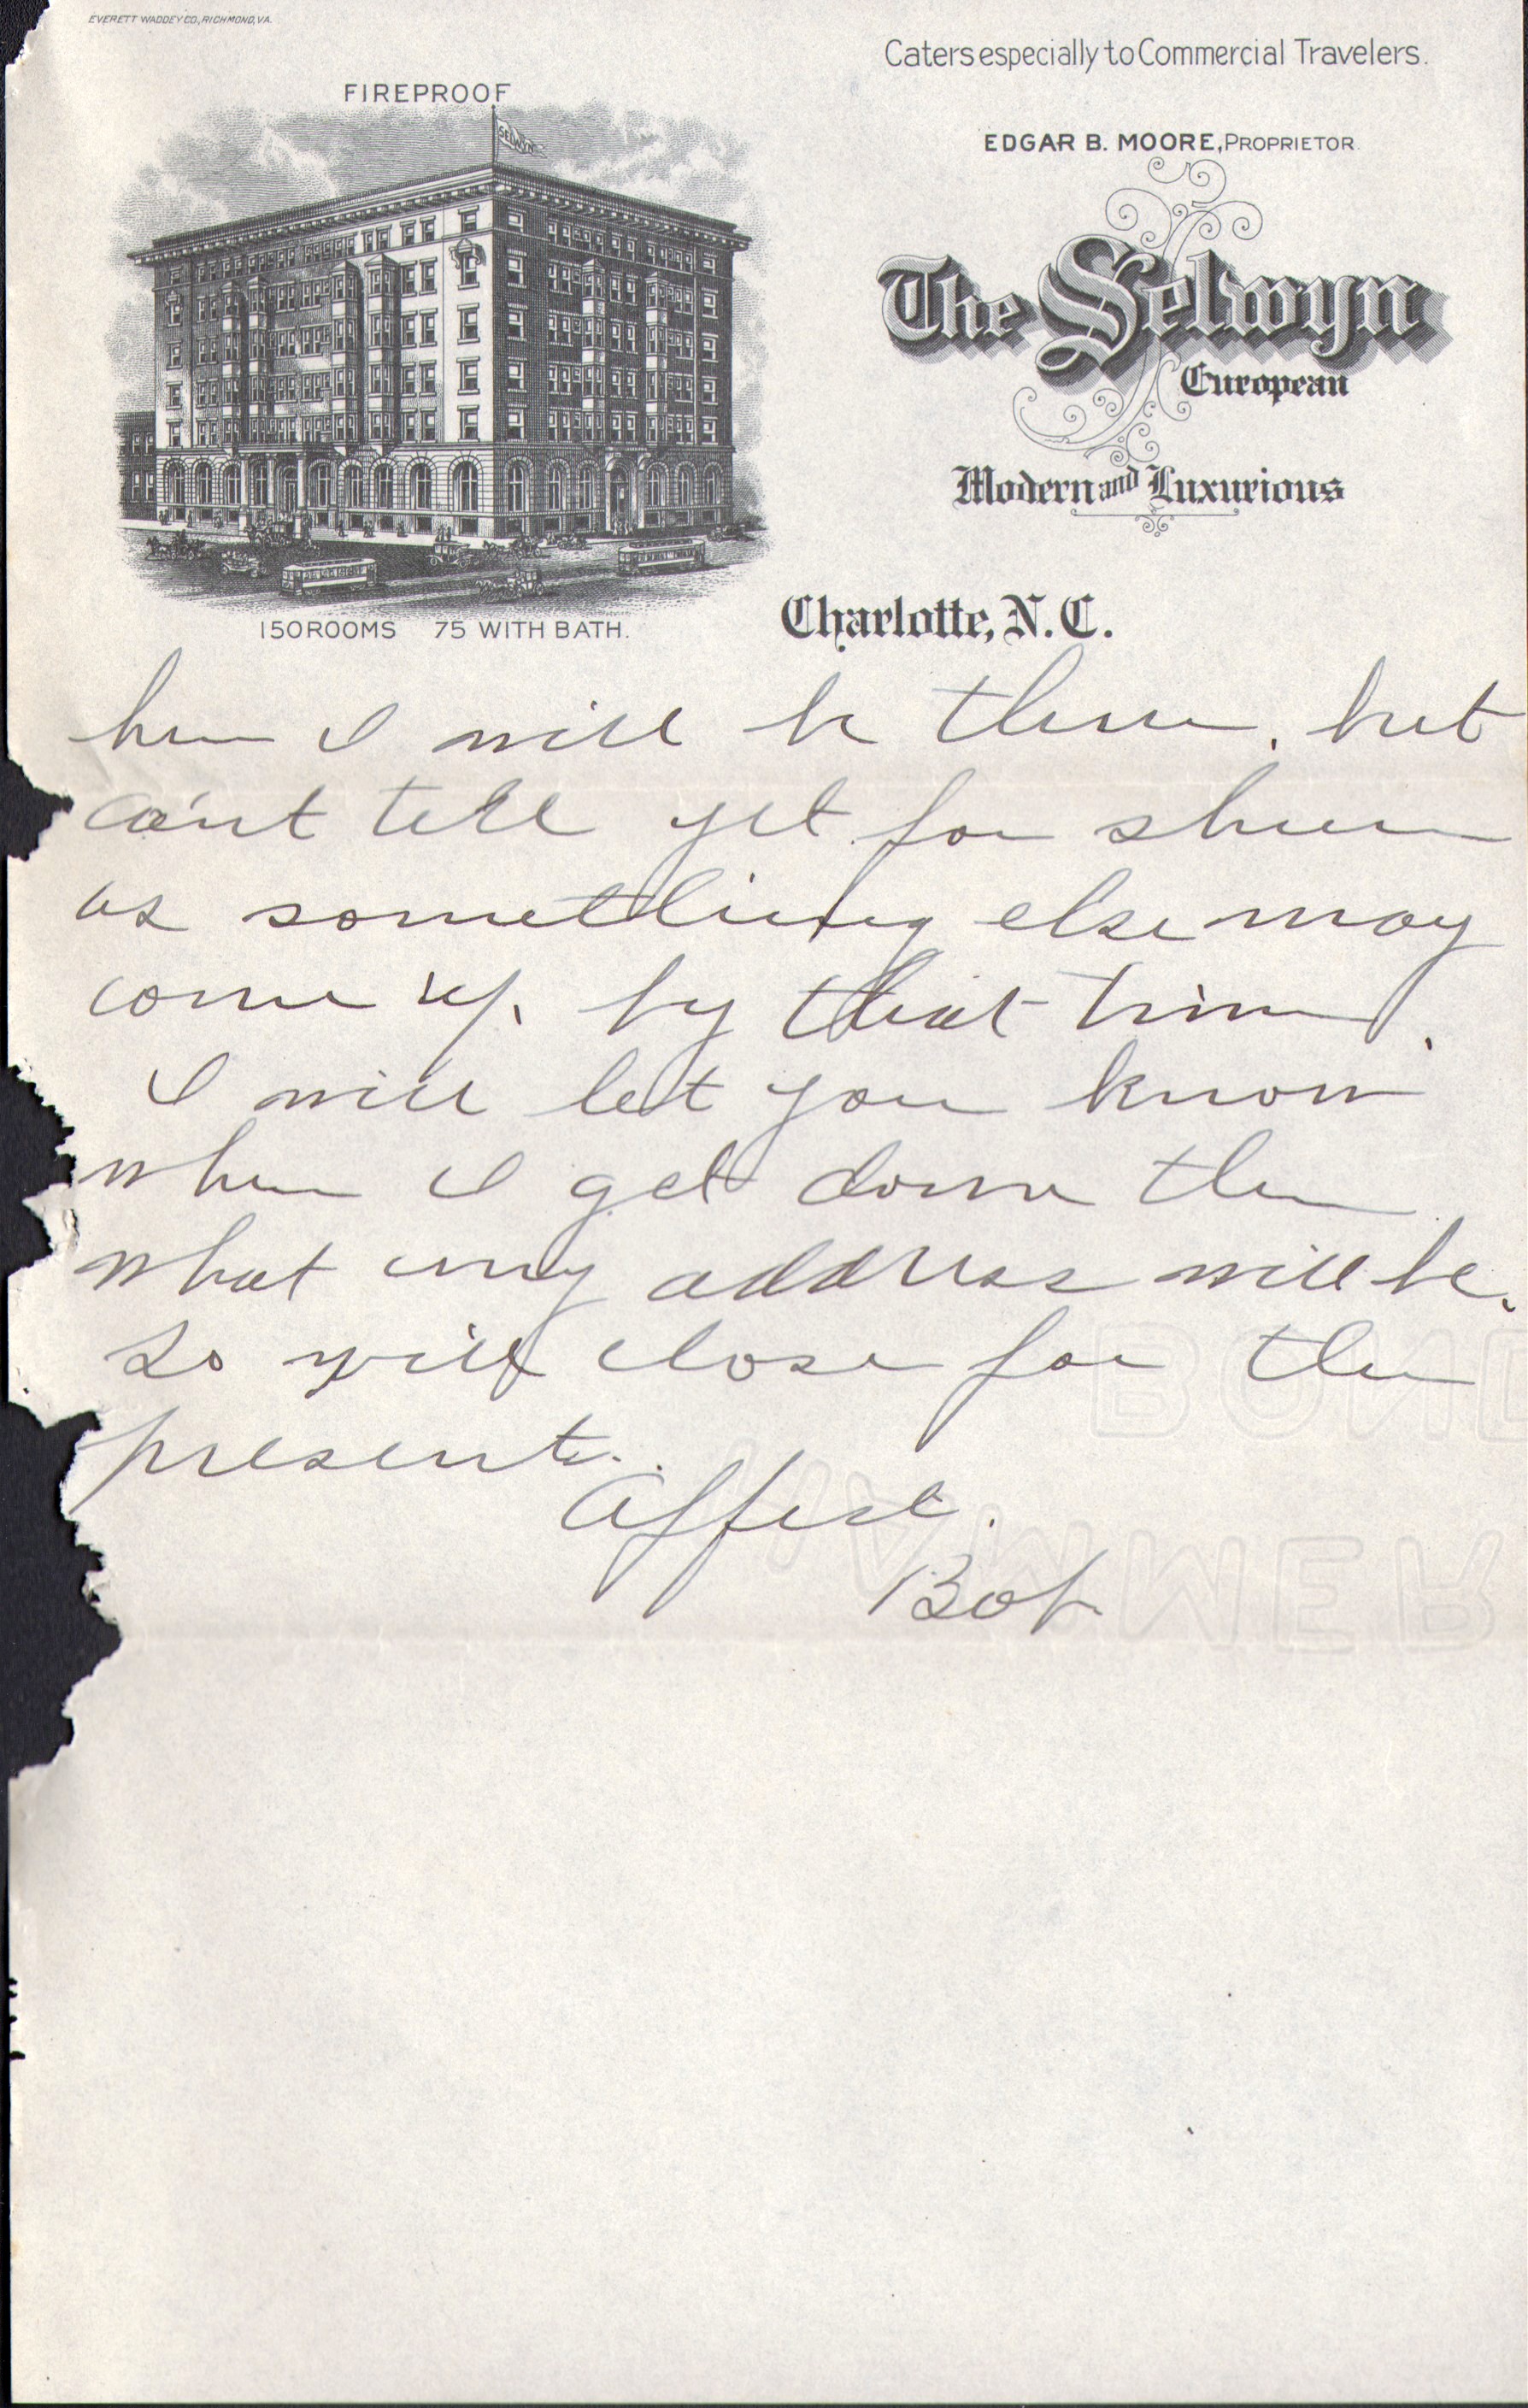 EVERETT WADDEY CO., RICHMOND, VA.
Caters especially to Commercial Travelers.
FIREPROOF
SELWYN
EDGAR B. MOORE, PROPRIETOR.
The Selwyn
European
Modern and Luxurious
150 ROOMS 75 WITH BATH.
Charlotte, N.C.
I will be there, but
can't tell yet for shure
as something else may
come up by that time.
I will let you know
when I get down there
what my address will be.
So will close for the
present.
Affect.
Bob
BOND
HAMMER